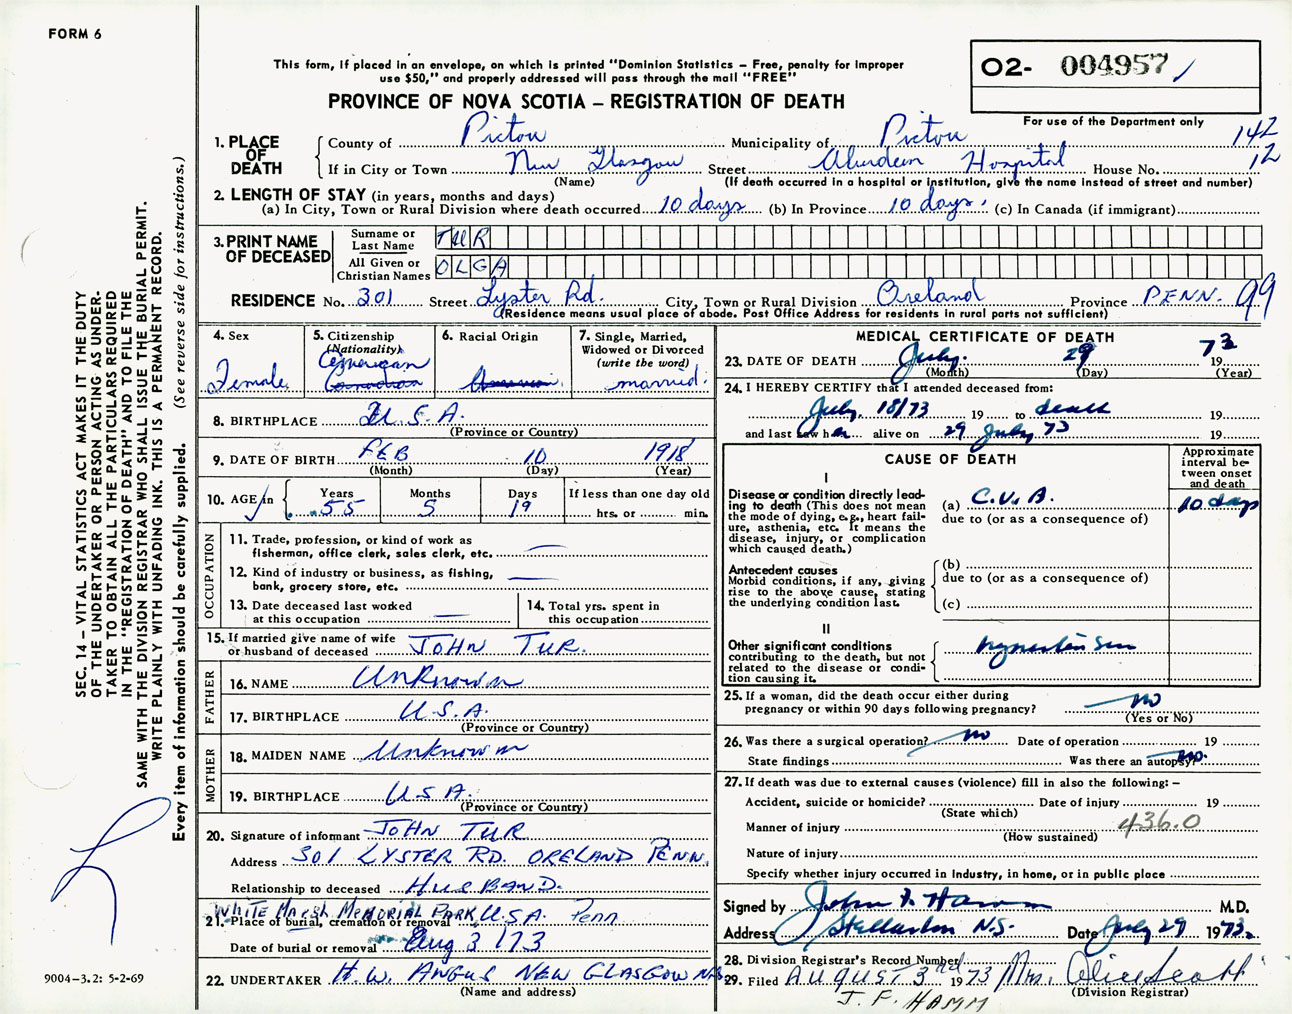 FORM 6
This form, if placed in an envelope, on which is printed "Dominion Statistics – Free, penalty for improper
use $50," and properly addressed will pass through the mail "FREE"
PROVINCE OF NOVA SCOTIA – REGISTRATION OF DEATH
O2- 004957
For use of the Department only
142
12
1. PLACE OF DEATH
County of Pictou Municipality of Pictou
If in City or Town New Glasgow Street Aberdeen Hospital House No.
(Name) (If death occurred in a hospital or institution, give the name instead of street and number)
2. LENGTH OF STAY (in years, months and days)
(a) In City, Town or Rural Division where death occurred 10 days (b) In Province 10 days. (c) In Canada (if immigrant)
3. PRINT NAME OF DECEASED
Surname or Last Name TUR
All Given or Christian Names OLGA
RESIDENCE No. 301 Street Lyster Rd. City, Town or Rural Division Oreland Province PENN. 99
(Residence means usual place of abode. Post Office Address for residents in rural parts not sufficient)
4. Sex
Female
5. Citizenship
(Nationality)
American
Canadian
6. Racial Origin
7. Single, Married,
Widowed or Divorced
(write the word)
married.
8. BIRTHPLACE U.S.A.
(Province or Country)
9. DATE OF BIRTH FEB 10 1918
(Month) (Day) (Year)
10. AGE in
Years Months Days If less than one day old
55 5 19 hrs. or min.
OCCUPATION
11. Trade, profession, or kind of work as
fisherman, office clerk, sales clerk, etc. —
12. Kind of industry or business, as fishing,
bank, grocery store, etc. —
13. Date deceased last worked
at this occupation —
14. Total yrs. spent in
this occupation
15. If married give name of wife
or husband of deceased JOHN TUR.
FATHER
16. NAME Unknown
17. BIRTHPLACE U.S.A.
(Province or Country)
MOTHER
18. MAIDEN NAME Unknown
19. BIRTHPLACE U.S.A.
(Province or Country)
20. Signature of informant JOHN TUR
Address 301 LYSTER RD. ORELAND PENN.
Relationship to deceased HUSBAND.
White Marsh Memorial Park U.S.A. Penn
21. Place of burial, cremation or removal
Date of burial or removal Aug 3/73
22. UNDERTAKER H.W. ANGUS NEW GLASGOW N.S.
(Name and address)
MEDICAL CERTIFICATE OF DEATH
23. DATE OF DEATH July. 29 19 73
(Month) (Day) (Year)
24. I HEREBY CERTIFY that I attended deceased from:
July 18/73 19 to death 19
and last saw her alive on 29 July 73 19
CAUSE OF DEATH
Approximate
interval be-
tween onset
and death
I
Disease or condition directly lead-
ing to death (This does not mean
the mode of dying, e.g., heart fail-
ure, asthenia, etc. It means the
disease, injury, or complication
which caused death.)
(a) C.V.A. 10 days
due to (or as a consequence of)
Antecedent causes
Morbid conditions, if any, giving
rise to the above cause, stating
the underlying condition last.
(b)
due to (or as a consequence of)
(c)
II
Other significant conditions
contributing to the death, but not
related to the disease or condi-
tion causing it.
hypertension
25. If a woman, did the death occur either during
pregnancy or within 90 days following pregnancy? no
(Yes or No)
26. Was there a surgical operation? no Date of operation 19
State findings Was there an autopsy? no.
27. If death was due to external causes (violence) fill in also the following: –
Accident, suicide or homicide? Date of injury 19
(State which)
Manner of injury 436.0
(How sustained)
Nature of injury
Specify whether injury occurred in industry, in home, or in public place
Signed by John F. Hamm M.D.
Address Stellarton N.S. Date July 29 1973
28. Division Registrar's Record Number
29. Filed AUGUST 3rd 1973 Mrs. Alice Scott
(Division Registrar)
J. F. HAMM
SEC. 14 – VITAL STATISTICS ACT MAKES IT THE DUTY
OF THE UNDERTAKER OR PERSON ACTING AS UNDER-
TAKER TO OBTAIN ALL THE PARTICULARS REQUIRED
IN THE "REGISTRATION OF DEATH" AND TO FILE THE
SAME WITH THE DIVISION REGISTRAR WHO SHALL ISSUE THE BURIAL PERMIT.
WRITE PLAINLY WITH UNFADING INK. THIS IS A PERMANENT RECORD.
Every item of information should be carefully supplied. (See reverse side for instructions.)
9004-3.2: 5-2-69